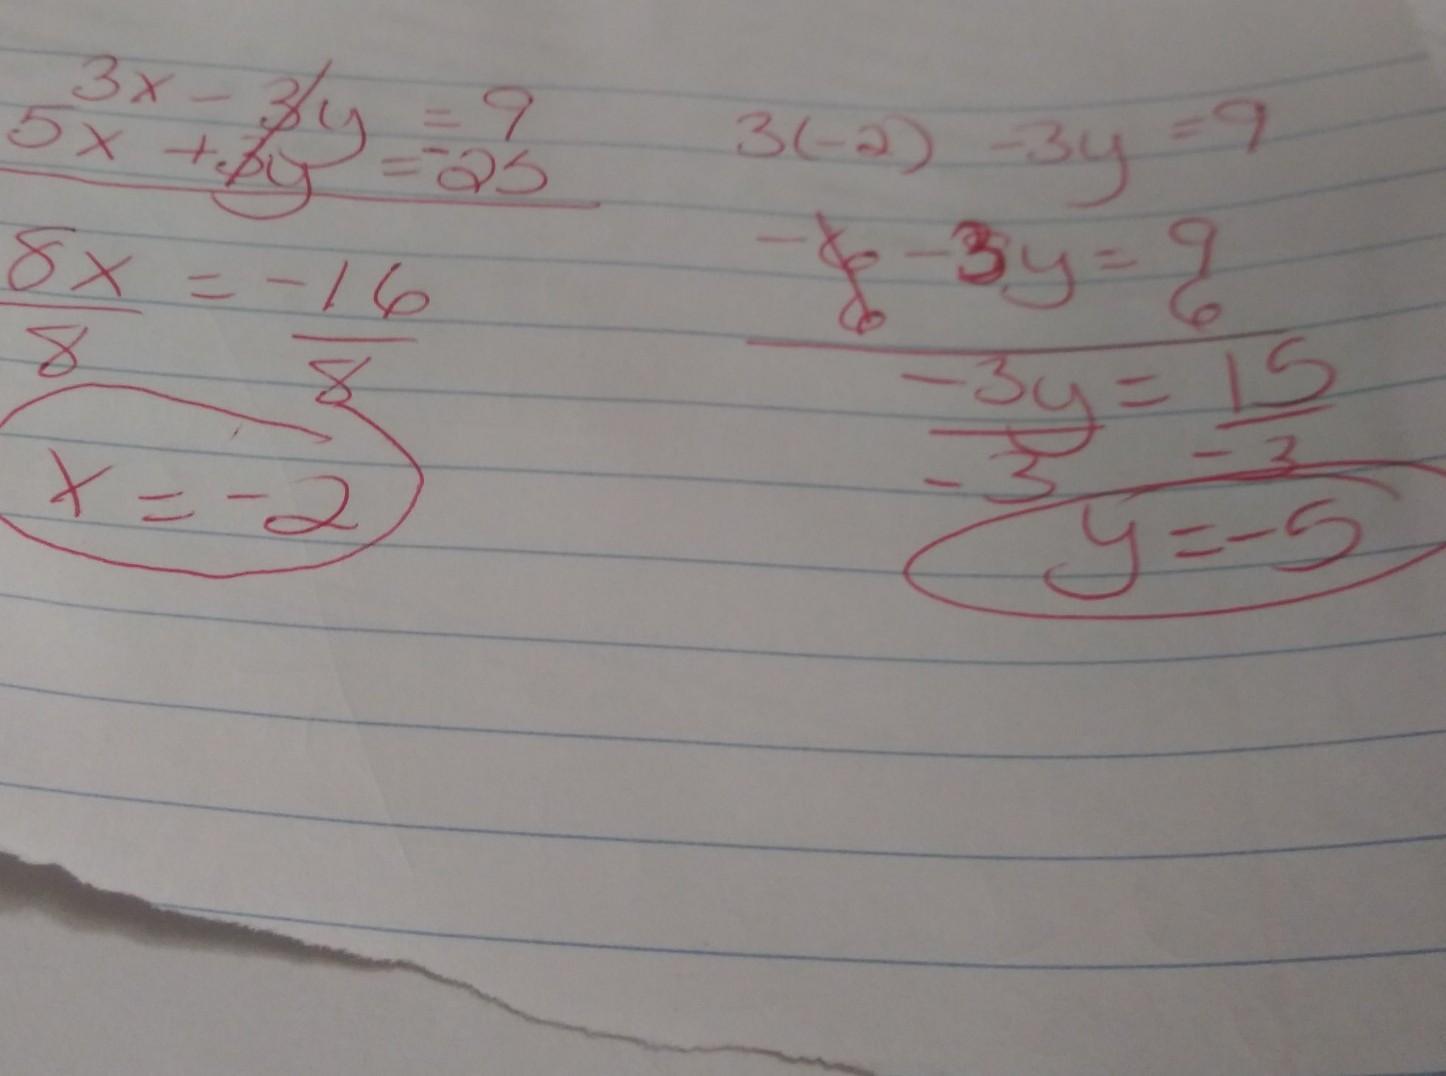 3x - 3y = 9
5x + 3y = -25
8x = -16
8 8
x = -2
3(-2) -3y = 9
-6 -3y = 9
6 6
-3y = 15
-3 -3
y = -5